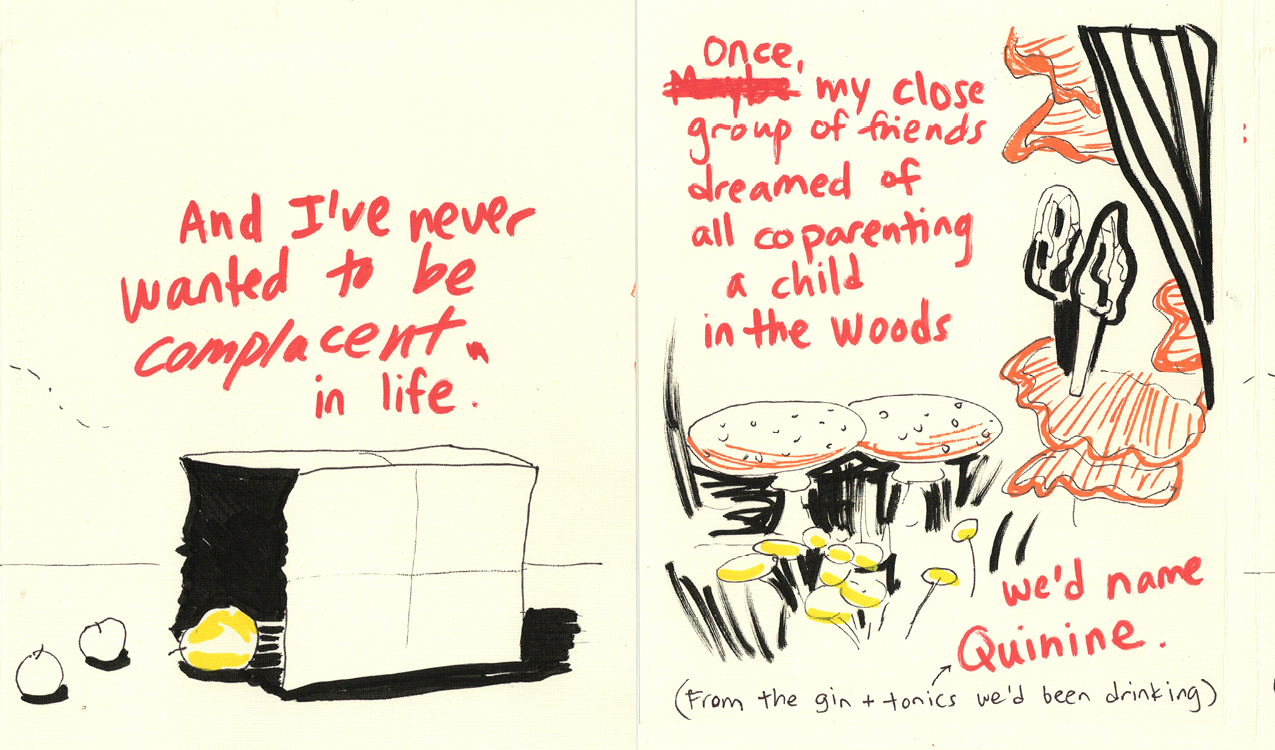 And I've never
wanted to be
complacent
in life.
Once,
Maybe my close
group of friends
dreamed of
all coparenting
a child
in the woods
we'd name
Quinine.
(From the gin + tonics we'd been drinking)